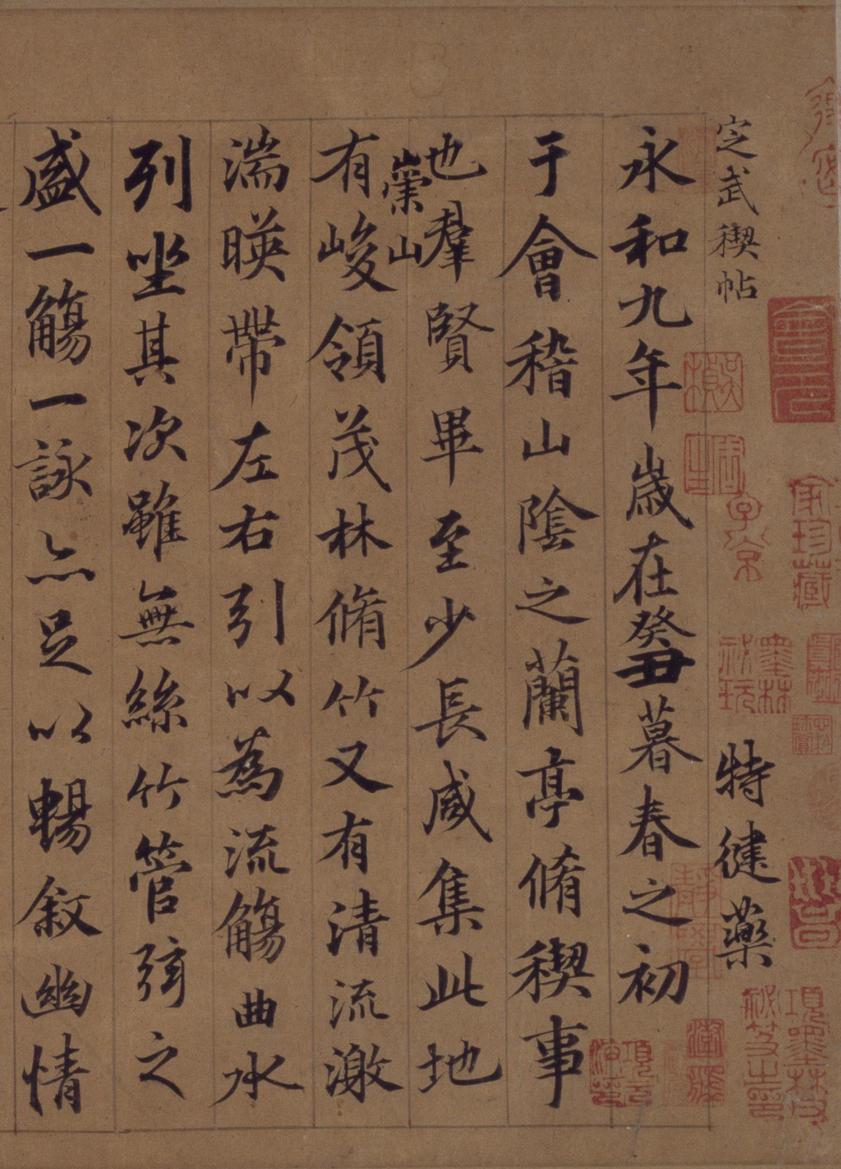 家珍藏
項墨林父祕笈之印
子京
墨林祕玩
定武稧帖
特健藥
永和九年歲在癸丑暮春之初
于會稽山陰之蘭亭脩稧事
也羣賢畢至少長咸集此地
崇山
有峻領茂林脩竹又有清流激
湍暎帶左右引以為流觴曲水
列坐其次雖無絲竹管弦之
盛一觴一詠亦足以暢敘幽情